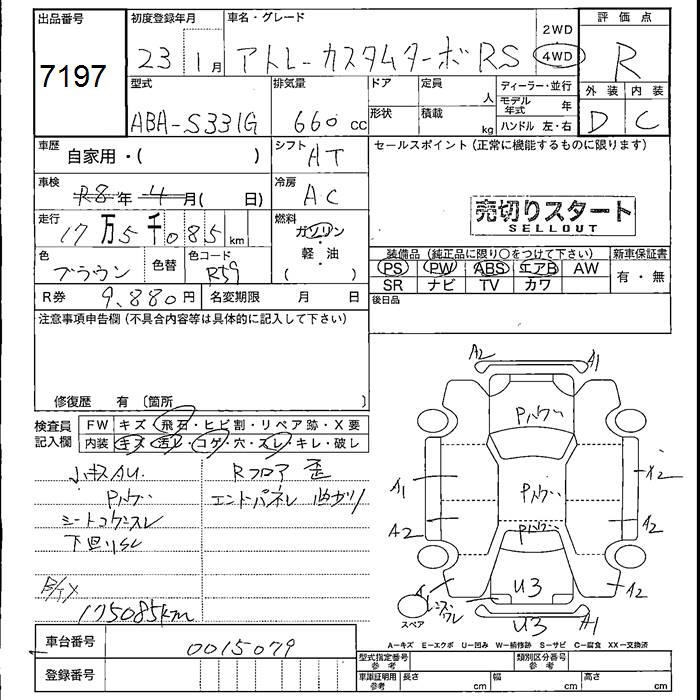 出品番号
7197
初度登録年月
23 1月
車名・グレード
アトレーカスタムターボRS
2WD
4WD
評価点
R
外装 内装
D C
型式
ABA-S331G
排気量
660 cc
ドア
定員
人
形状
積載
kg
ディーラー・並行
モデル年式 年
ハンドル 左・右
車歴
自家用・( )
シフト
AT
セールスポイント(正常に機能するものに限ります)
車検
R8年 4月( 日)
冷房
AC
売切りスタート
SELLOUT
走行
17万5千085km
燃料
ガソリン
・
軽・油
( )
色
ブラウン
色替
色コード
R59
装備品(純正品に限り○をつけて下さい)
PS PW ABS エアB AW
SR ナビ TV カワ
新車保証書
有・無
R券 9,880円
名変期限 月 日
後日品
注意事項申告欄(不具合内容等は具体的に記入して下さい)
修復歴 有〔箇所 〕
検査員
記入欄
FW キズ・飛石・ヒビ割・リペア跡・X要
内装 キズ・汚レ・コゲ・穴・スレ・キレ・破レ
小キズAU.
Pハゲ
シートコゲ スレ
下回りSC
175085km
Rフロア 歪
エンドパネル 曲ガリ
A2
A1
Pハゲ
A1
X2
Pハゲ
A2
A2
Pハゲ
U3
A2
スペア
U3
A1
A=キズ E=エクボ U=凹み W=補修跡 S=サビ C=腐食 XX=交換済
車台番号
0015079
登録番号
型式指定番号
参考
類別区分番号
参考
車庫証明用
参考
長さ cm
幅 cm
高さ cm